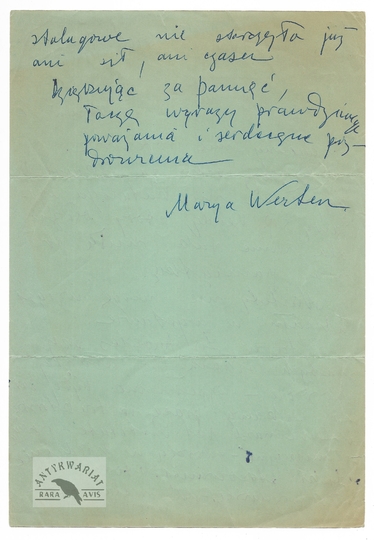 stalugowe nie starczyło już
ani sił, ani czasu
Dziękując za pamięć,
łączę wyrazy prawdziwego
poważania i serdeczne poz-
drowienia
Marya Werten.
ANTYKWARIAT
RARA AVIS